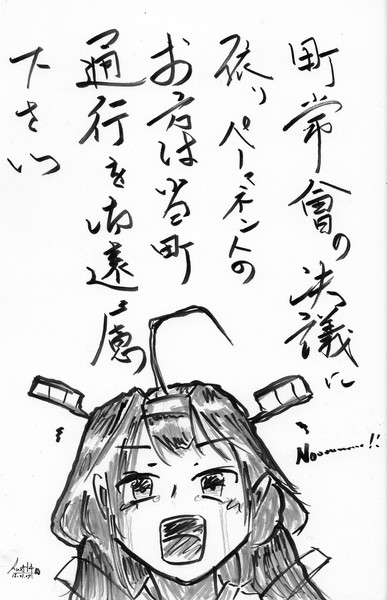 町常會の決議に
依りパーマネントの
お方は当町
通行を御遠慮
下さい
Nooooooo!!